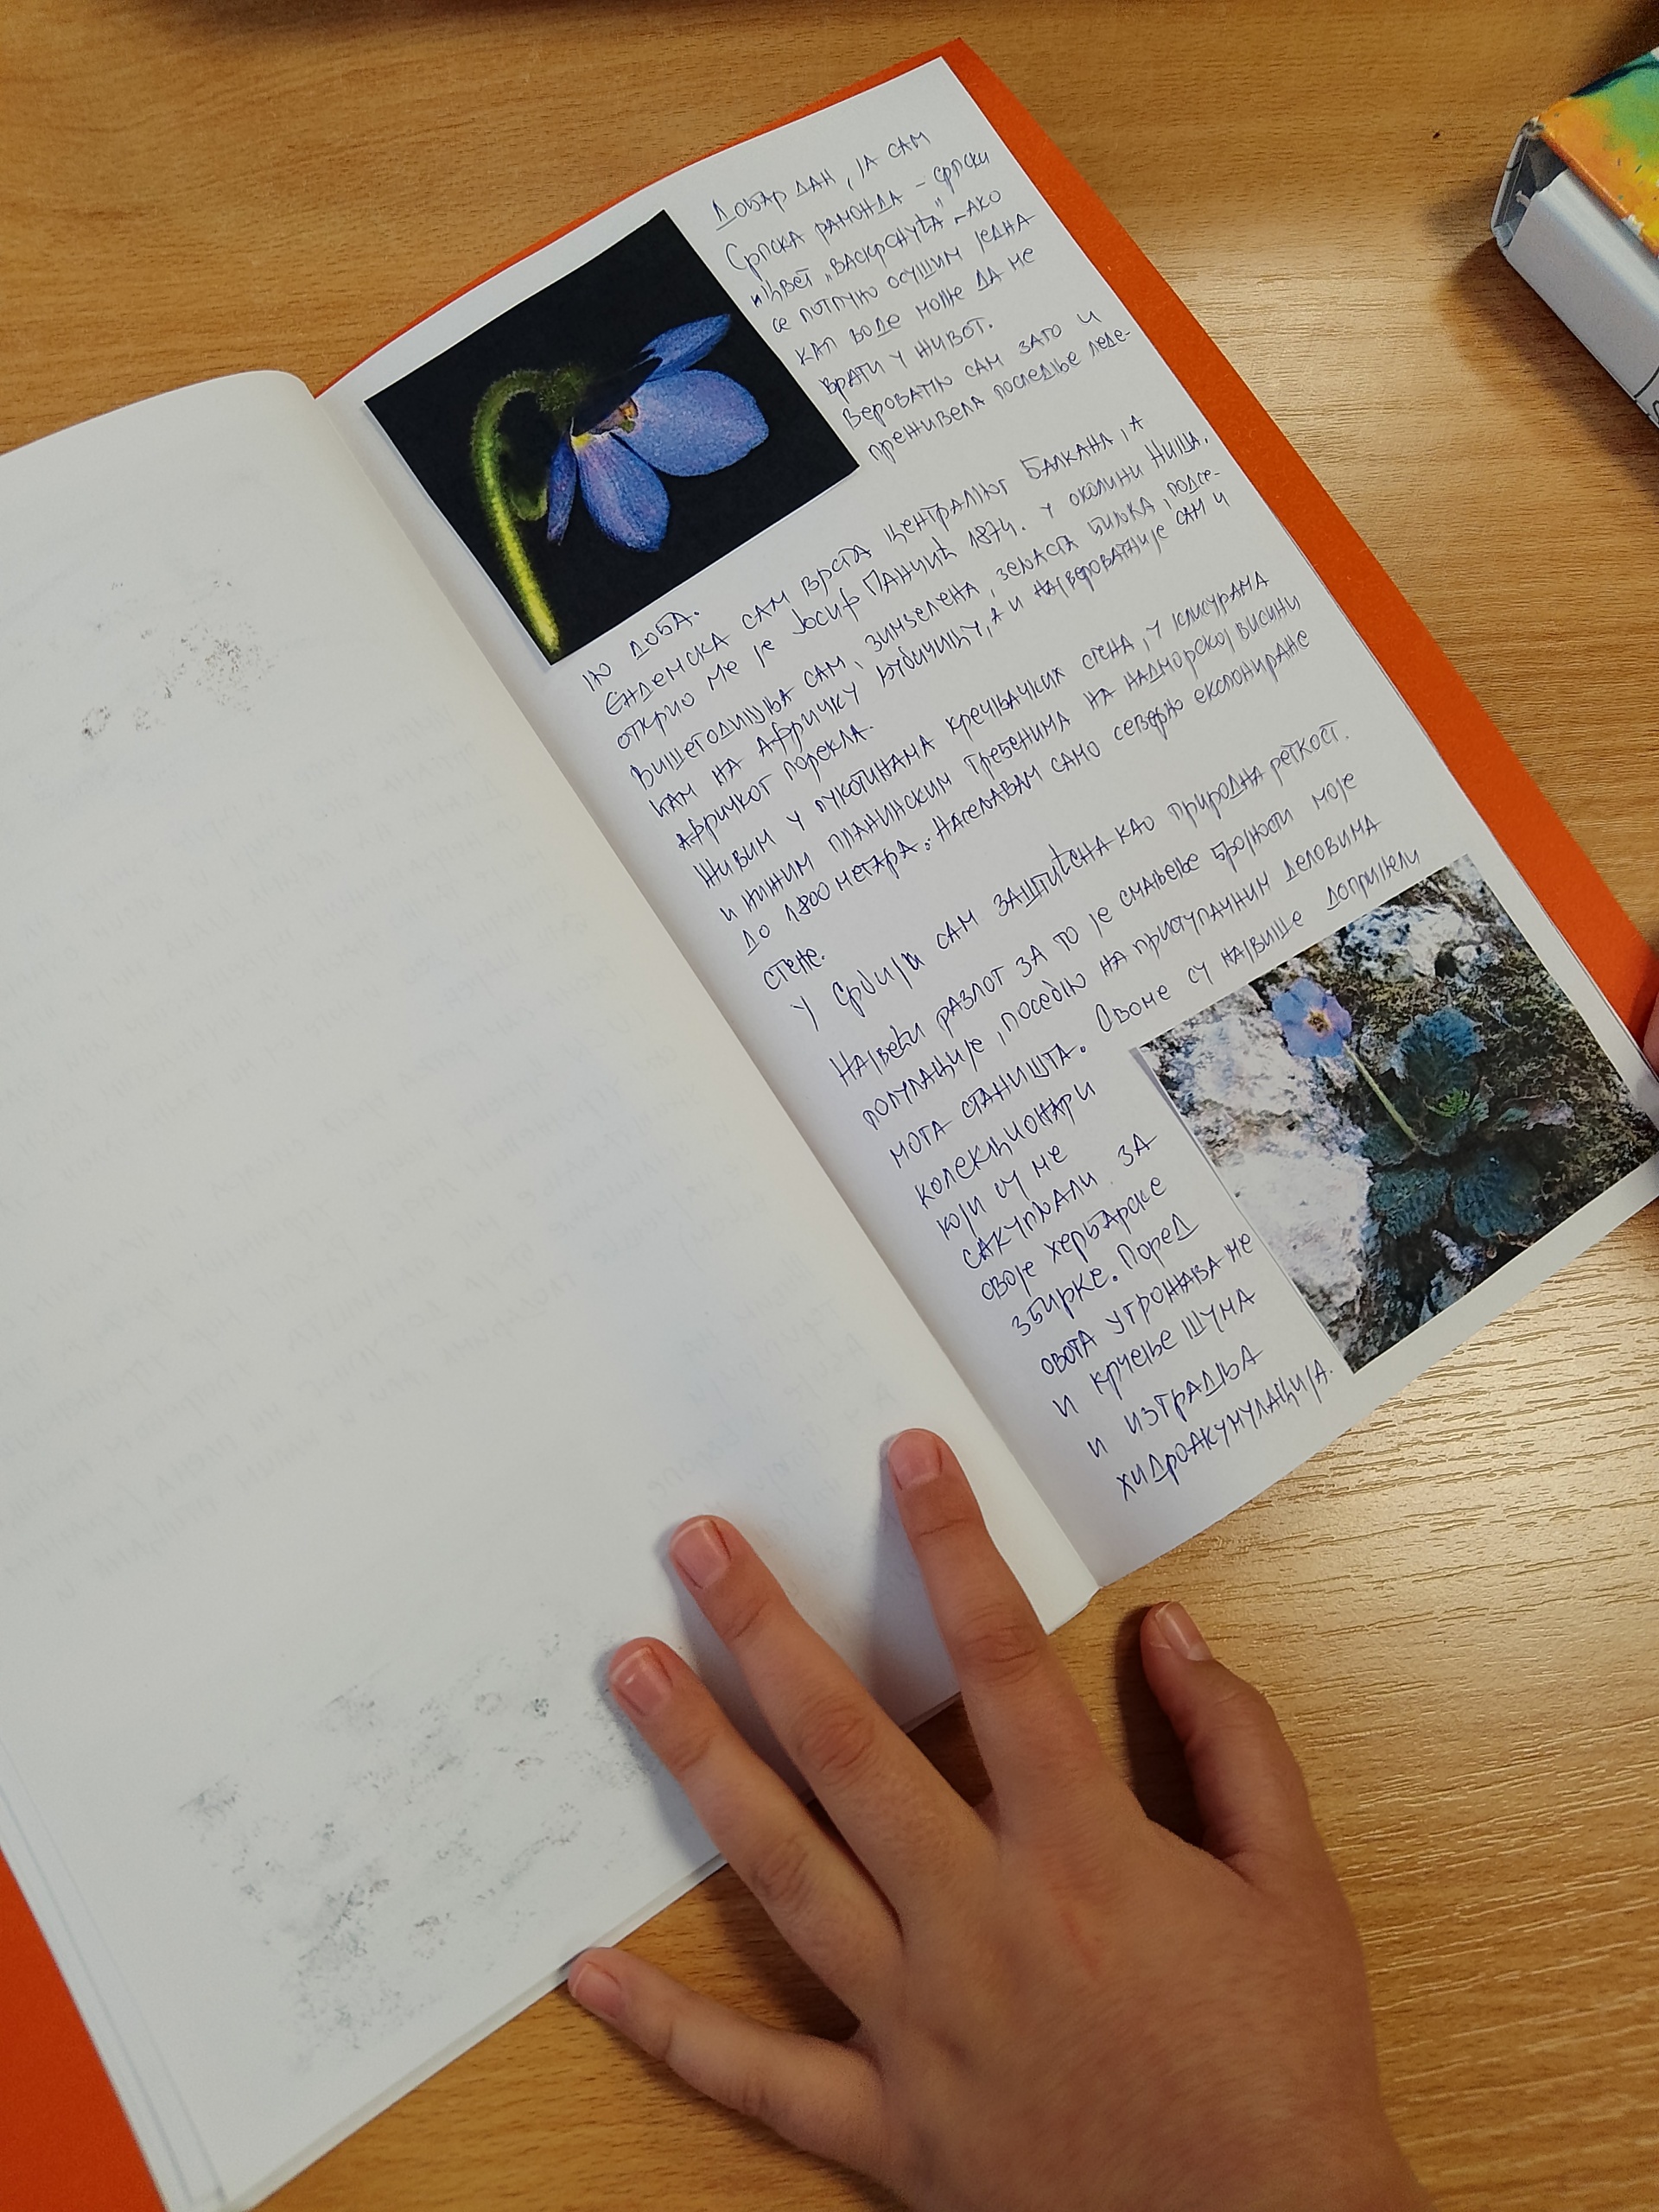 Добар дан, ја сам
Српска рамонда - српски
цвет „васкрснућа" - ако
се потпуно осушим једна
кап воде може да ме
врати у живот.
Вероватно сам зато и
преживела последње леде-
но доба.
Ендемска сам врста централног Балкана, а
открио ме је Јосиф Панчић 1874. у околини Ниша.
Вишегодишња сам, зимзелена, зељаста биљка, подсе-
ћам на афричку љубичицу, а и највероватније сам и
афричког порекла.
Живим у пукотинама кречњачких стена, у клисурама
и нижим планинским гребенима на надморској висини
до 1800 метара. Насељавам само северно експониране
стене.
У Србији сам заштићена као природна реткост.
Највећи разлог за то је смањење бројности моје
популације, посебно на приступачним деловима
мога станишта. Овоме су највише допринели
колекционари
који су ме
сакупљали за
своје хербарске
збирке. Поред
овога угрожава ме
и крчење шума
и изградња
хидроакумулација.